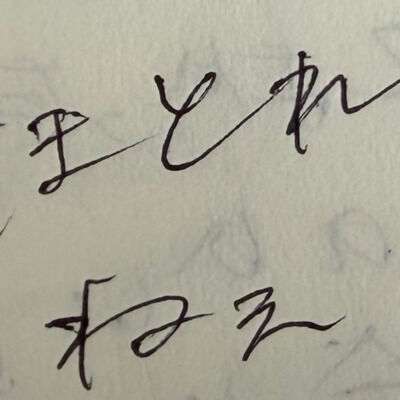 まとれ
ねえ